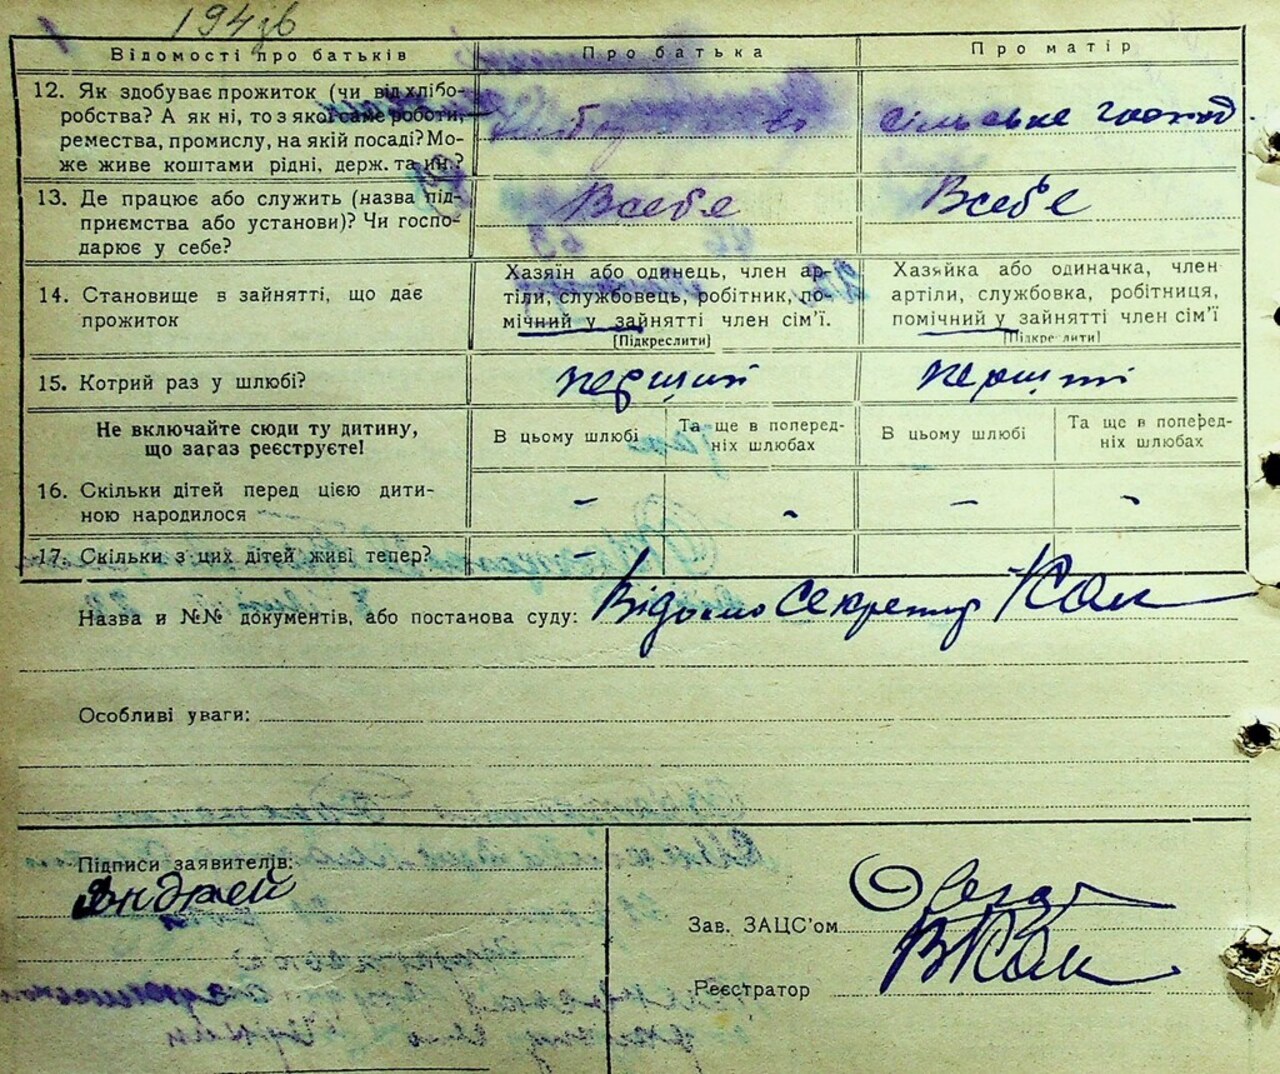 194зв
Відомості про батьків Про батька Про матір
12. Як здобуває прожиток (чи від хлібо-
робства? А як ні, то з якої саме роботи,
ремества, промислу, на якій посаді? Мо-
же живе коштами рідні, держ. та ин.?
сільське господ.
13. Де працює або служить (назва під-
приємства або установи)? Чи госпо-
дарює у себе?
Всебя
Всебе
14. Становище в зайнятті, що дає
прожиток
Хазяїн або одинець, член ар-
тіли, службовець, робітник, по-
мічний у зайнятті член сім'ї.
[Підкреслити]
Хазяйка або одиначка, член
артіли, службовка, робітниця,
помічний у зайнятті член сім'ї
[Підкреслити]
15. Котрий раз у шлюбі?
перший
перший
Не включайте сюди ту дитину,
що загаз реєструєте!
В цьому шлюбі
Та ще в поперед-
ніх шлюбах
В цьому шлюбі
Та ще в поперед-
ніх шлюбах
16. Скільки дітей перед цією дити-
ною народилося
- - - -
17. Скільки з цих дітей живі тепер?
-
Назва и №№ документів, або постанова суду: Відомо Секретар
Особливі уваги:
Підписи заявителів:
Андрей
Зав. ЗАЦС'ом
Реєстратор